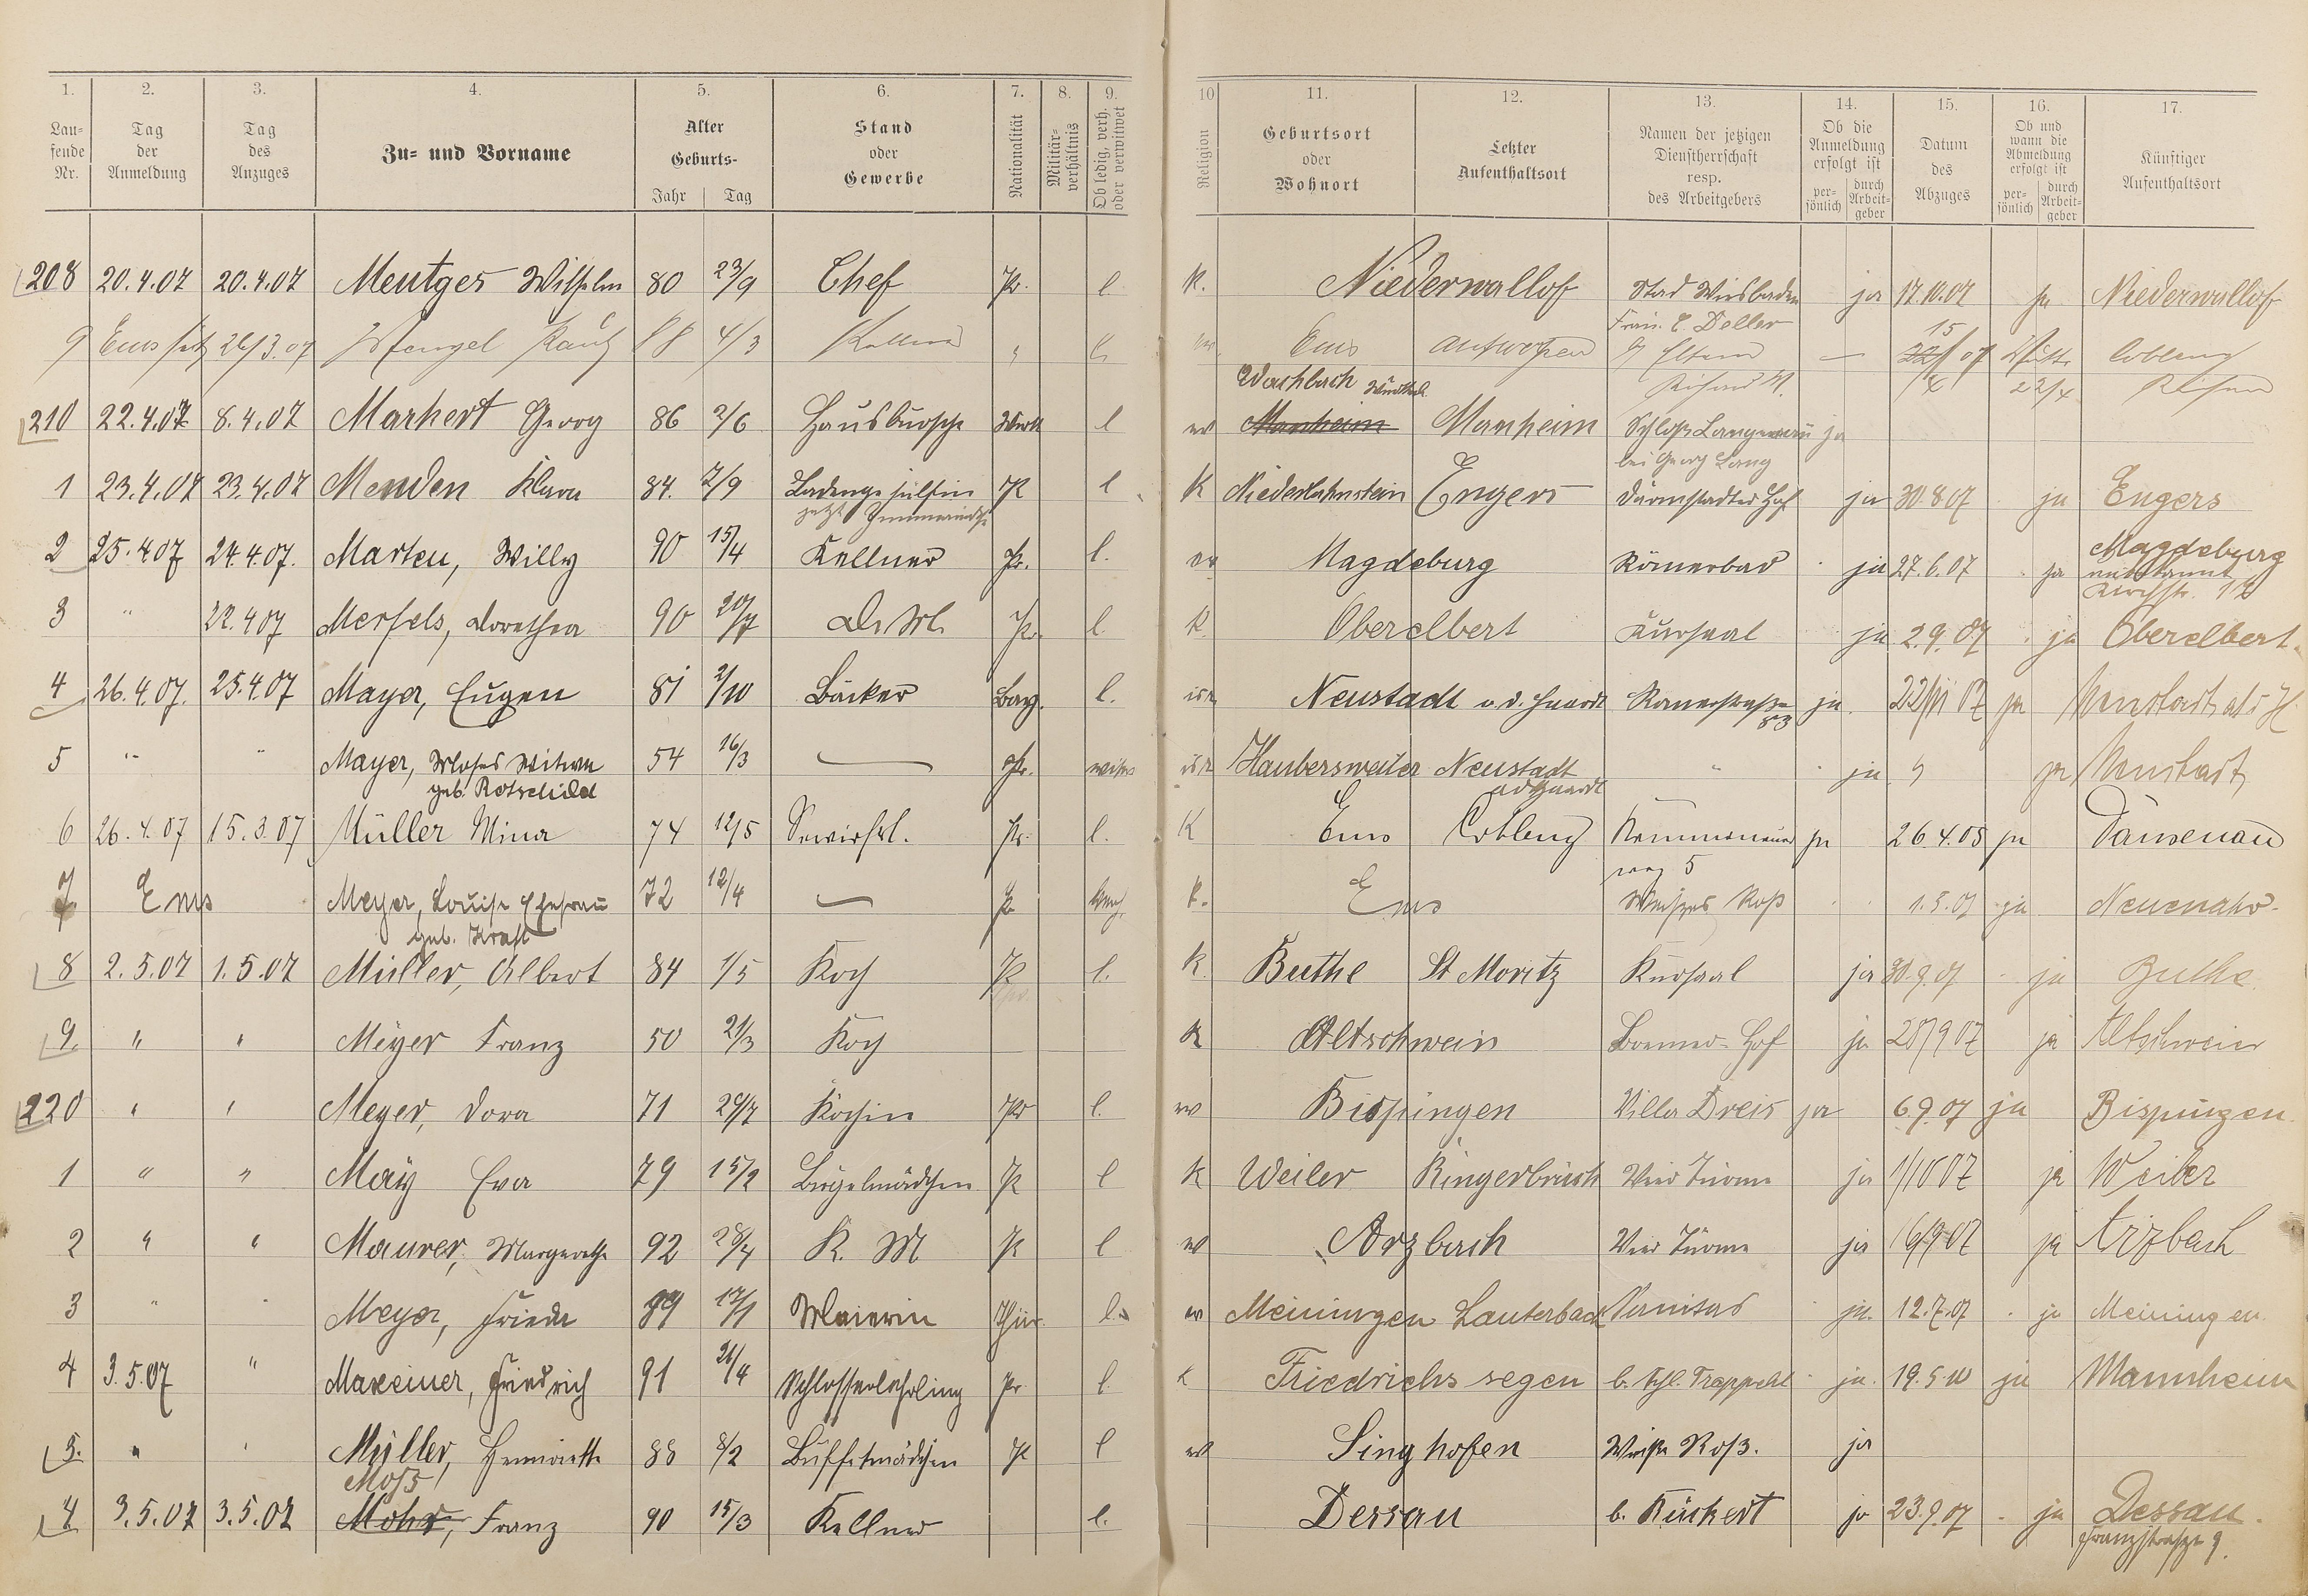 1. 2. 3. 4. 5. 6. 7. 8. 9. 10 11. 12. 13. 14. 15. 16. 17.
Laufende Nr. Tag der Anmeldung Tag des Anzuges Zu- und Vorname Alter Geburts- Jahr Tag Stand oder Gewerbe Nationalität Militärverhältnis Ob ledig, verh. oder verwitwet Religion Geburtsort oder Wohnort Letzter Aufenthaltsort Namen der jetzigen Dienstherrschaft resp. des Arbeitgebers Ob die Anmeldung erfolgt ist persönlich durch Arbeitgeber Datum des Abzuges Ob und wann die Abmeldung erfolgt ist persönlich durch Arbeitgeber Künftiger Aufenthaltsort
208 20.4.07 20.4.07 Mentges Wilhelm 80 23/9 Chef Pr. l. K. Niederwallof Stad Wiesbaden ja 17.10.07 ja Niederwallof
Frau. C. Deller
9 Ems 26/3.07 88 4/3 Kellner " l. Ems Antwerpen Eltern — 15 07 Coblenz
Wachbach
210 22.4.07 8.4.07 Markert Georg 86 2/6 Hausbursche l ev Manheim Manheim Schloss Langenau ja
bei Georg Lang
1 23.4.07 23.4.07 Menden Klara 84. 7/9 Ladengehülfin Pr l K Niederlahnstein Engers Darmstadter Hof ja 30.8.07 ja Engers
jetzt
2 25.4.07 24.4.07. Marten, Willy 90 15/4 Kellner Pr. l. ev Magdeburg Römerbad ja 27.6.07 ja Magdeburg
3 " 22.4.07 Merfels, Dorothea 90 20/7 Pr. l. K. Oberelbert Kursaal ja 2.9.07 ja Oberelbert.
4 26.4.07. 25.4.07 Mayer, Eugen 81 2/10 Bäcker Bay. l. isr Neustadt a. d. Haardt Römerstraße ja. ja Neustadt a/d H.
83
5 " " Mayer, Moses Witwe 54 16/3 — Pr. isr Haubersweiler Neustadt " ja " ja Neustadt
geb. Rotschild a d Haardt
6 26.4.07 15.3.07 Müller Mina 74 12/5 Pr. l. K Ems Coblenz ja 26.4.08 ja Dausenau
weg 5
7. Ems Meyer, Louise Ehefrau 72 12/4 — Pr verh. K. Ems Weißes Roß 1.5.07 ja Neuenahr
geb. Kraft
8 2.5.07 1.5.07 Müller, Albert 84 1/5 Koch Pr l. K. Buthe St Moritz Kursaal ja 30.9.07 ja Buthe
9. " " Meyer Franz 50 21/3 Koch K Altschweier Bremer Hof ja 28/9 07 ja Altschweier
220 " " Meyer, Dora 71 20/7 Köchin Pr l. ev Bispingen Villa Dreis ja 6.9.07 ja Bispingen
1 " " May Eva 79 15/2 Bügelmädchen Pr l K Weiler Bingerbrück Vier Türme ja 1/10 07 ja Weiler
2 " " Maurer, Margarethe 92 28/4 K. M Pr l ev Arzbach Vier Türme ja 16/9 07 ja Arzbach
3 " " Meyer, Frieda 89 17/1 Thür. l. ev Meiningen Lauterbach Sanitas ja. 12.7.07 ja Meiningen
4 3.5.07 " Maxeiner, Friedrich 91 21/4 Schlosserlehrling Pr l. K Friedrichssegen ja. 19.5.10 ja Mannheim
5. " " Müller, Henriette 88 8/2 Buffetmädchen Pr l ev Singhofen Weiße Roß. ja
Moss
4 3.5.07 3.5.07 Mohr, Franz 90 15/3 Kellner l. Dessau b. Rückert ja 23.9.07 ja Dessau.
Franzstraße 9.